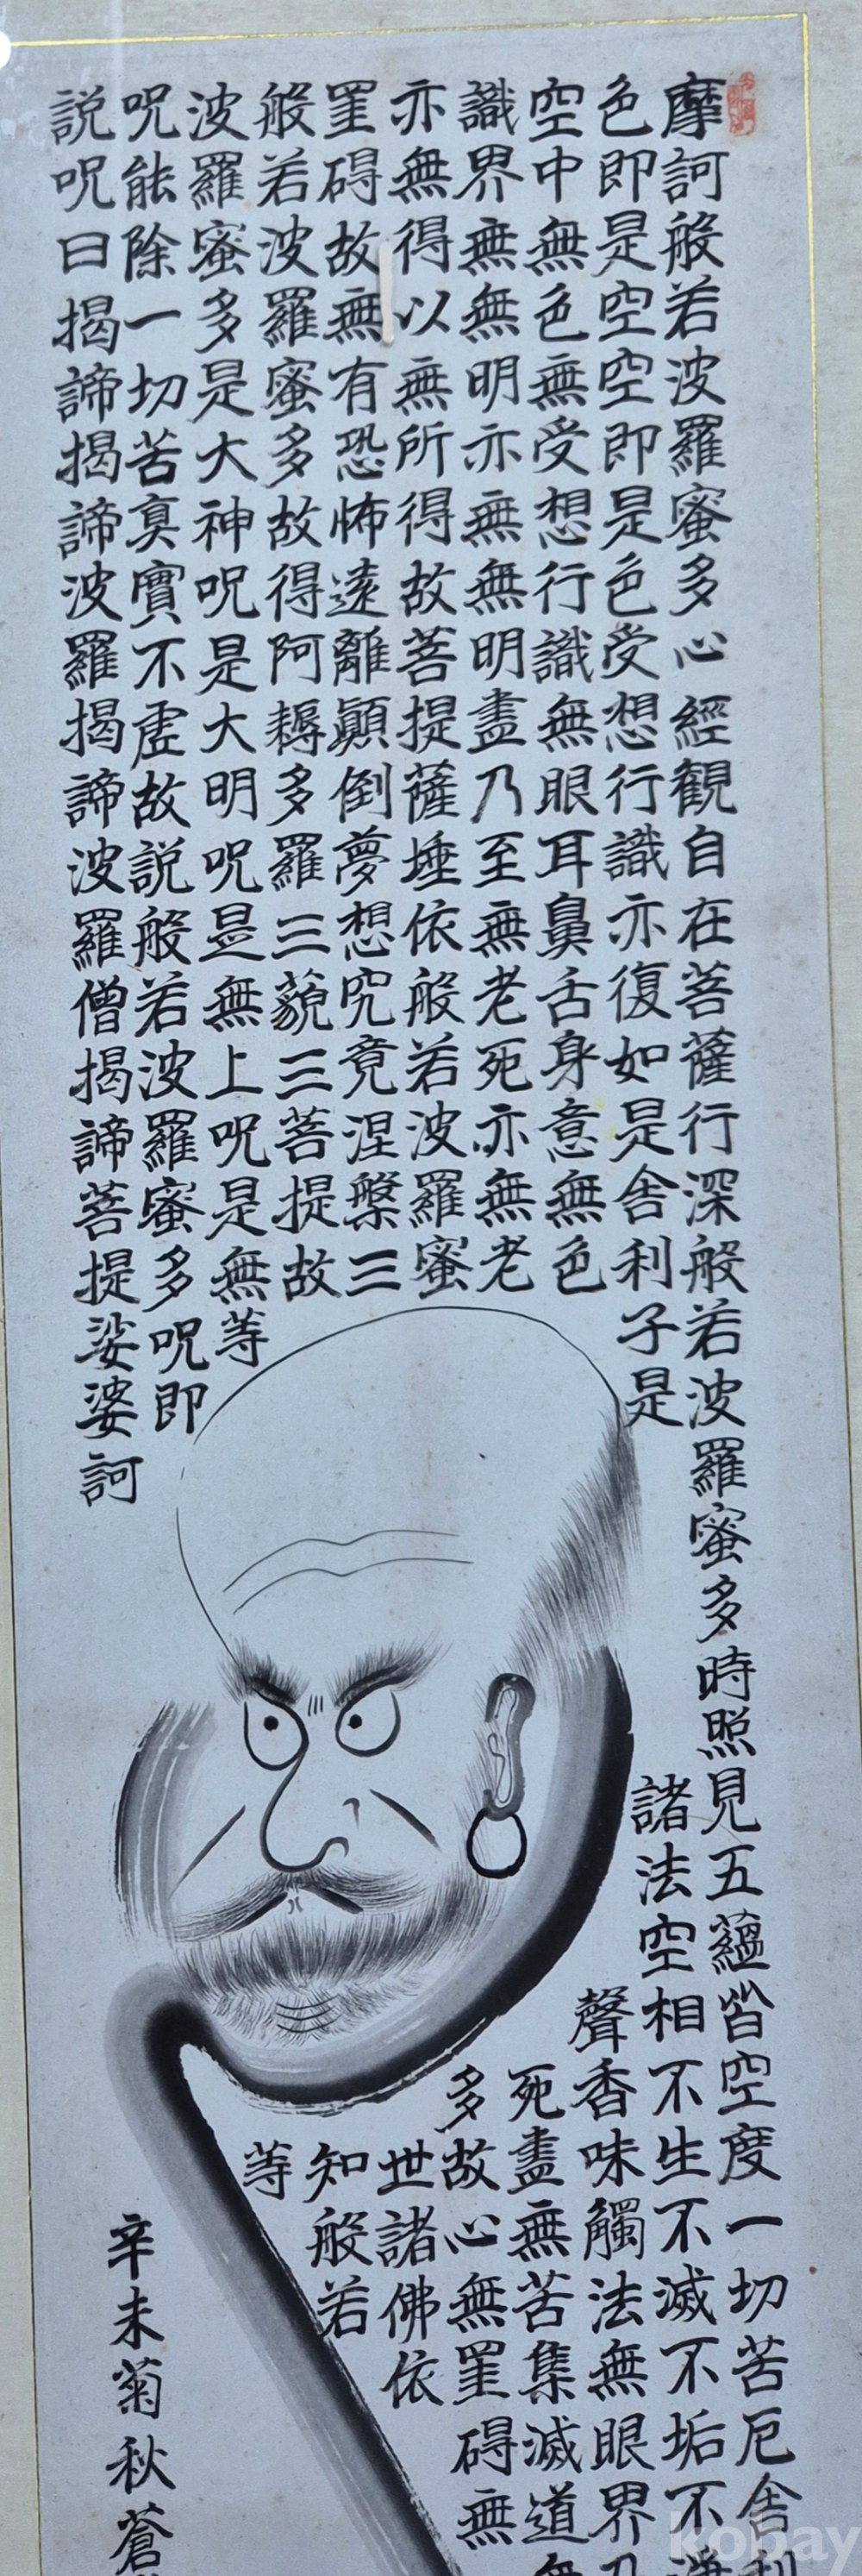 摩訶般若波羅蜜多心經觀自在菩薩行深般若波羅蜜多時照見五蘊皆空度一切苦厄舍利
色即是空空即是色受想行識亦復如是舍利子是諸法空相不生不滅不垢不
空中無色無受想行識無眼耳鼻舌身意無色聲香味觸法無眼界乃
識界無無明亦無無明盡乃至無老死亦無老死盡無苦集滅道無
亦無得以無所得故菩提薩埵依般若波羅蜜多故心無罣碍無
罣碍故無有恐怖遠離顚倒夢想究竟涅槃三世諸佛依
般若波羅蜜多故得阿耨多羅三藐三菩提故知般若
波羅蜜多是大神呪是大明呪是無上呪是無等等
呪能除一切苦眞實不虛故説般若波羅蜜多呪即
説呪曰揭諦揭諦波羅揭諦波羅僧揭諦菩提娑婆訶
辛未菊秋蒼
kobay